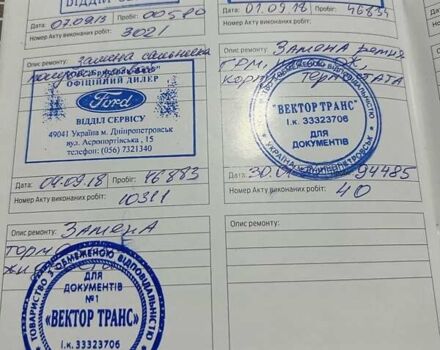 ВІДДІЛ СЕРВІСУ
Дата: 07.09.13 Пробіг: 00580
Номер Акту виконаних робіт: 3021
Опис ремонту: замена сальника
ОФІЦІЙНИЙ ДИЛЕР
Ford
ВІДДІЛ СЕРВІСУ
49041 Україна м. Дніпропетровськ
вул. Аеропортівська, 15
телефон: (056) 7321340
Дата: 04.09.18 Пробіг: 46883
Номер Акту виконаних робіт: 10311
Опис ремонту: ЗАМЕНА
ТОРМ
ТОВАРИСТВО З ОБМЕЖЕНОЮ ВІДПОВІДАЛЬНІСТЮ
ДЛЯ
ДОКУМЕНТІВ
№1
«ВЕКТОР ТРАНС»
І.к. 33323706
Дата: 01.09.18 Пробіг: 46834
Номер Акту виконаних робіт:
Опис ремонту: ЗАМЕНА ремня
ГРМ,
ТЕРМОСТАТА
"ВЕКТОР ТРАНС"
І.к. 33323706
ДЛЯ
ДОКУМЕНТІВ
Дата: 30. 94485
Номер Акту виконаних робіт: 40
Опис ремонту: